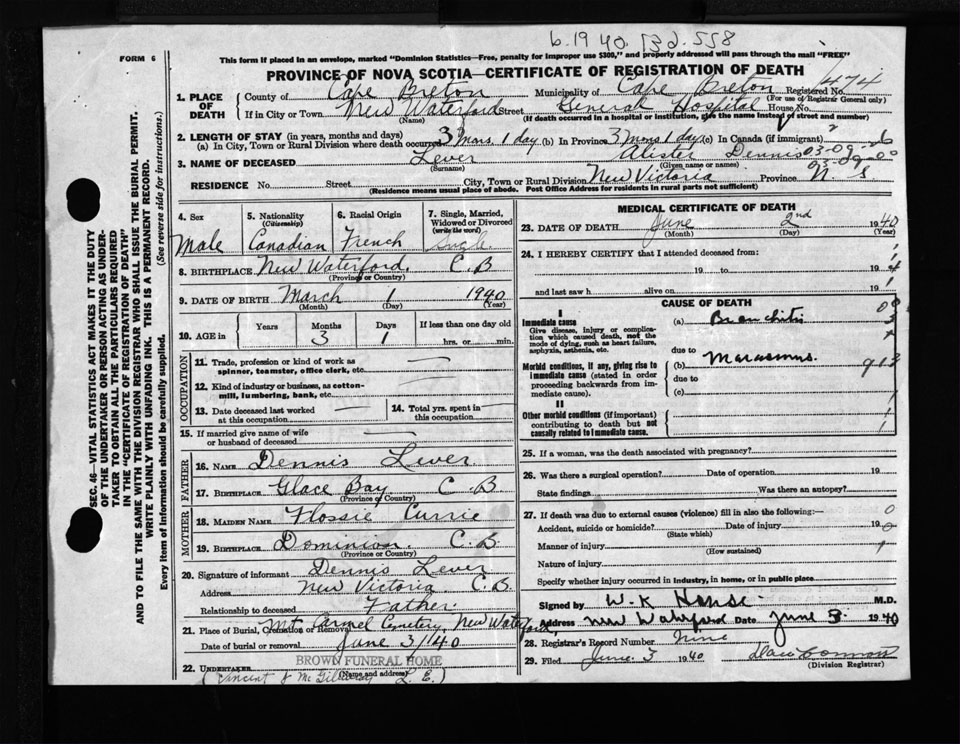 b. 1940. 132.558
FORM 6
This form if placed in an envelope, marked "Dominion Statistics—Free, penalty for improper use $300," and properly addressed will pass through the mail "FREE"
PROVINCE OF NOVA SCOTIA—CERTIFICATE OF REGISTRATION OF DEATH
1. PLACE OF DEATH County of Cape Breton Municipality of Cape Breton Registered No. 474
(For use of Registrar General only)
If in City or Town New Waterford Street General Hospital House No.
(Name) (If death occurred in a hospital or institution, give the name instead of street and number)
2. LENGTH OF STAY (in years, months and days)
(a) In City, Town or Rural Division where death occurred 3 Mons. 1 day (b) In Province 3 Mons 1 day (c) In Canada (if immigrant)
3. NAME OF DECEASED Lever Alister Dennis
(Surname) (Given name or names)
RESIDENCE No. Street City, Town or Rural Division New Victoria Province N S
(Residence means usual place of abode. Post Office Address for residents in rural parts not sufficient)
4. Sex Male
5. Nationality (Citizenship) Canadian
6. Racial Origin French
7. Single, Married, Widowed or Divorced (write the word) Single
8. BIRTHPLACE New Waterford. C. B
(Province or Country)
9. DATE OF BIRTH March 1 1940
(Month) (Day) (Year)
10. AGE in Years Months 3 Days 1 If less than one day old hrs. or min.
OCCUPATION
11. Trade, profession or kind of work as spinner, teamster, office clerk, etc.
12. Kind of industry or business, as cotton-mill, lumbering, bank, etc.
13. Date deceased last worked at this occupation
14. Total yrs. spent in this occupation
15. If married give name of wife or husband of deceased
FATHER
16. NAME Dennis Lever
17. BIRTHPLACE Glace Bay C. B
(Province or Country)
MOTHER
18. MAIDEN NAME Flossie Currie
19. BIRTHPLACE Dominion. C. B.
(Province or Country)
20. Signature of informant Dennis Lever
Address New Victoria C. B.
Relationship to deceased Father.
21. Place of Burial, Cremation or Removal Mt Carmel Cemetery, New Waterford,
Date of burial or removal June 3/140
22. UNDERTAKER BROWN FUNERAL HOME
(Name and address)
MEDICAL CERTIFICATE OF DEATH
23. DATE OF DEATH June 2nd 1940
(Month) (Day) (Year)
24. I HEREBY CERTIFY that I attended deceased from:
19 to 19
and last saw h alive on 19
CAUSE OF DEATH
I
Immediate cause (a) Bronchitis
Give disease, injury or complication which caused death, not the mode of dying, such as heart failure, asphyxia, asthenia, etc.
due to
Morbid conditions, if any, giving rise to immediate cause (stated in order proceeding backwards from immediate cause). (b) Marasmus.
due to
(c)
II
Other morbid conditions (if important) contributing to death but not causally related to immediate cause.
25. If a woman, was the death associated with pregnancy?
26. Was there a surgical operation? Date of operation 19
State findings Was there an autopsy?
27. If death was due to external causes (violence) fill in also the following:—
Accident, suicide or homicide? Date of injury 19
(State which)
Manner of injury
(How sustained)
Nature of injury
Specify whether injury occurred in industry, in home, or in public place
Signed by W. K House. M.D.
Address New Waterford Date June 3. 1940
28. Registrar's Record Number Nine
29. Filed June. 3 1940
(Division Registrar)
SEC. 46—VITAL STATISTICS ACT MAKES IT THE DUTY OF THE UNDERTAKER OR PERSON ACTING AS UNDERTAKER TO OBTAIN ALL THE PARTICULARS REQUIRED IN THE "CERTIFICATE OF REGISTRATION OF DEATH" AND TO FILE THE SAME WITH THE DIVISION REGISTRAR WHO SHALL ISSUE THE BURIAL PERMIT.
WRITE PLAINLY WITH UNFADING INK. THIS IS A PERMANENT RECORD.
Every item of information should be carefully supplied. (See reverse side for instructions.)